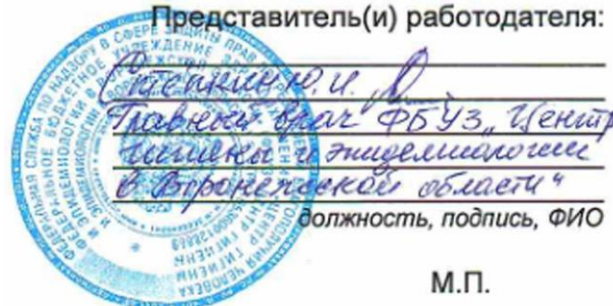 Представитель(и) работодателя:
Стёпкин Ю.И.
Главный врач ФБУЗ „Центр
гигиены и эпидемиологии
в Воронежской области"
должность, подпись, ФИО
М.П.
ФЕДЕРАЛЬНАЯ СЛУЖБА ПО НАДЗОРУ В СФЕРЕ ЗАЩИТЫ ПРАВ
ЧЕЛОВЕКА
ФЕДЕРАЛЬНОЕ БЮДЖЕТНОЕ УЧРЕЖДЕНИЕ
И ЭПИДЕМИОЛОГИИ В